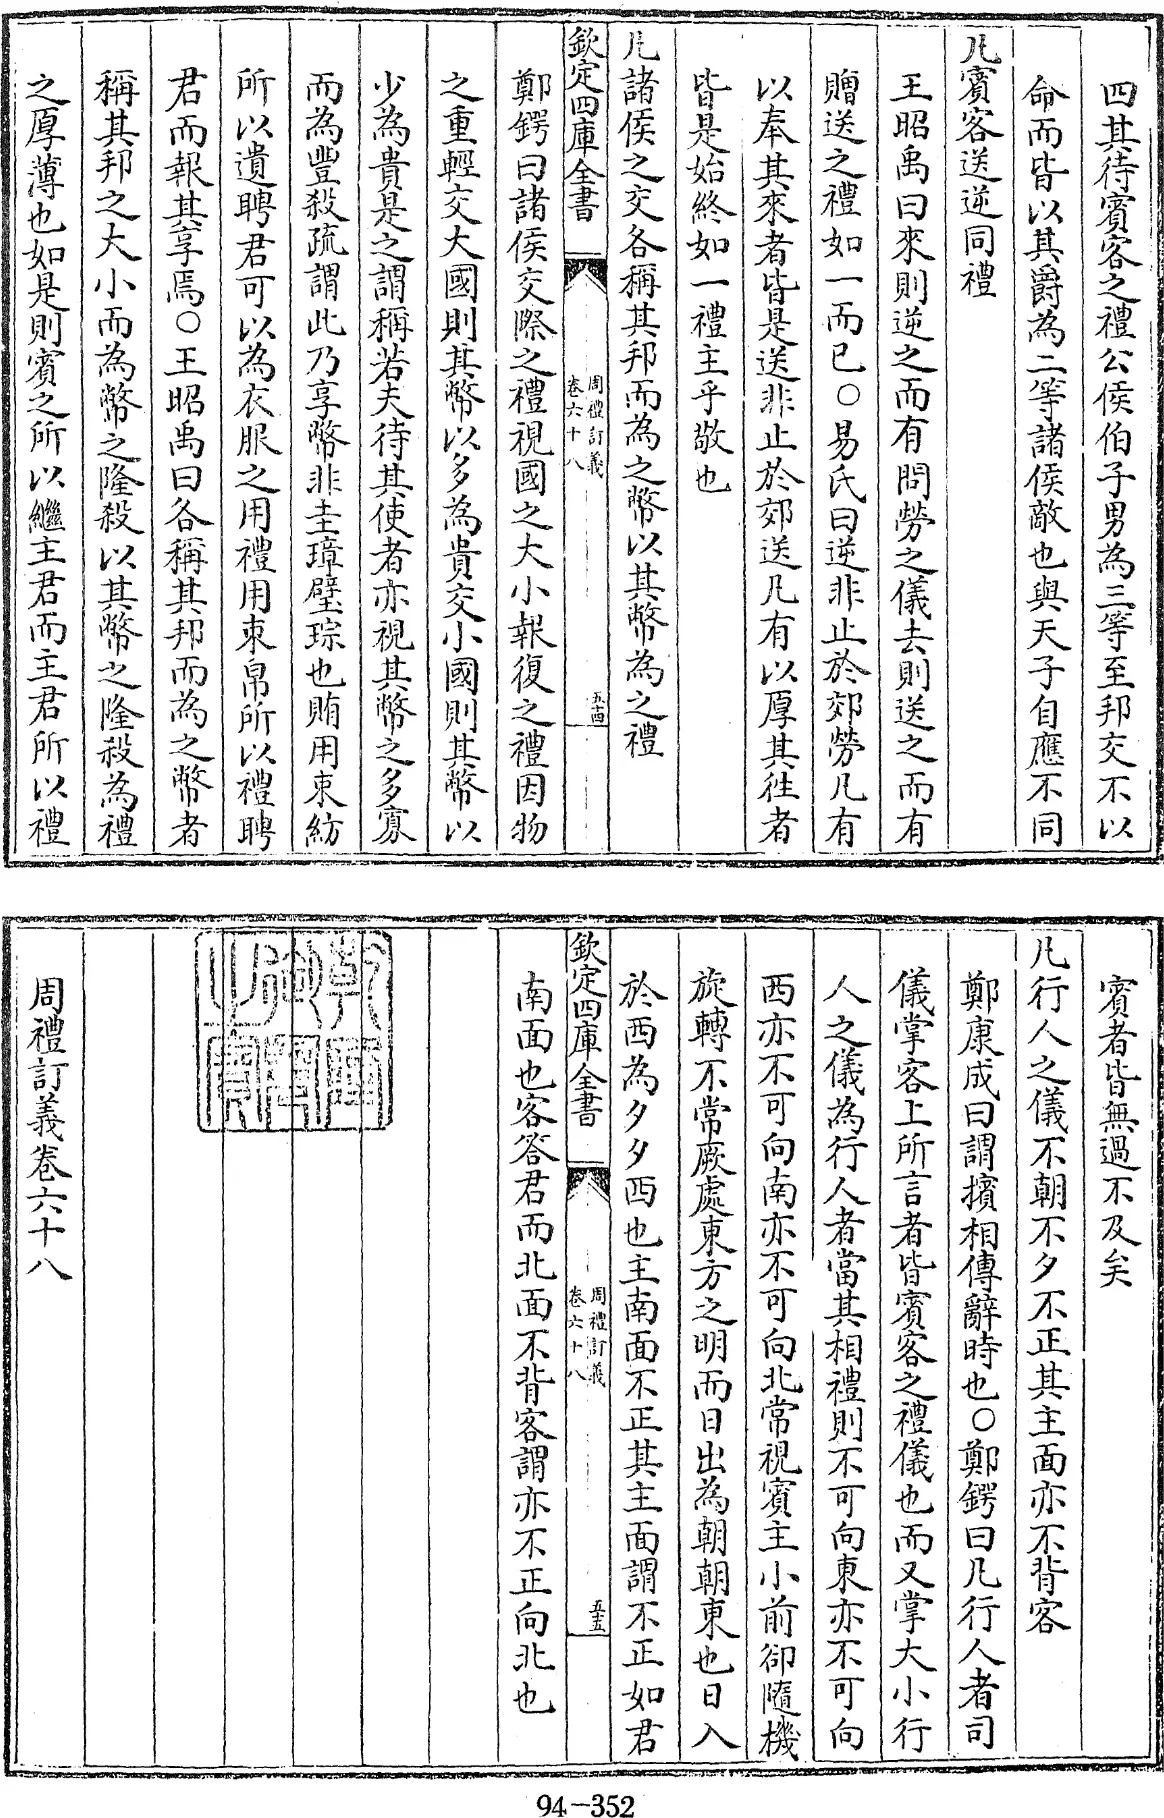 四其待賓客之禮公侯伯子男為三等至邦交不以
命而皆以其爵為二等諸侯敵也與天子自應不同
凡賓客送逆同禮
王昭禹曰來則逆之而有問勞之儀去則送之而有
贈送之禮如一而已○易氏曰逆非止於郊勞凡有
以奉其來者皆是送非止於郊送凡有以厚其往者
皆是始終如一禮主乎敬也
凡諸侯之交各稱其邦而為之幣以其幣為之禮
欽定四庫全書
周禮訂義
卷六十八
五十四
鄭鍔曰諸侯交際之禮視國之大小報復之禮因物
之重輕交大國則其幣以多為貴交小國則其幣以
少為貴是之謂稱若夫待其使者亦視其幣之多寡
而為豐殺疏謂此乃享幣非圭璋璧琮也賄用束紡
所以遺聘君可以為衣服之用禮用束帛所以禮聘
君而報其享焉○王昭禹曰各稱其邦而為之幣者
稱其邦之大小而為幣之隆殺以其幣之隆殺為禮
之厚薄也如是則賓之所以繼主君而主君所以禮
賓者皆無過不及矣
凡行人之儀不朝不夕不正其主面亦不背客
鄭康成曰謂擯相傳辭時也○鄭鍔曰凡行人者司
儀掌客上所言者皆賓客之禮儀也而又掌大小行
人之儀為行人者當其相禮則不可向東亦不可向
西亦不可向南亦不可向北常視賓主小前卻隨機
旋轉不常厥處東方之明而日出為朝朝東也日入
於西為夕夕西也主南面不正其主面謂不正如君
欽定四庫全書
周禮訂義
卷六十八
五十五
南面也客答君而北面不背客謂亦不正向北也
周禮訂義卷六十八
94-352